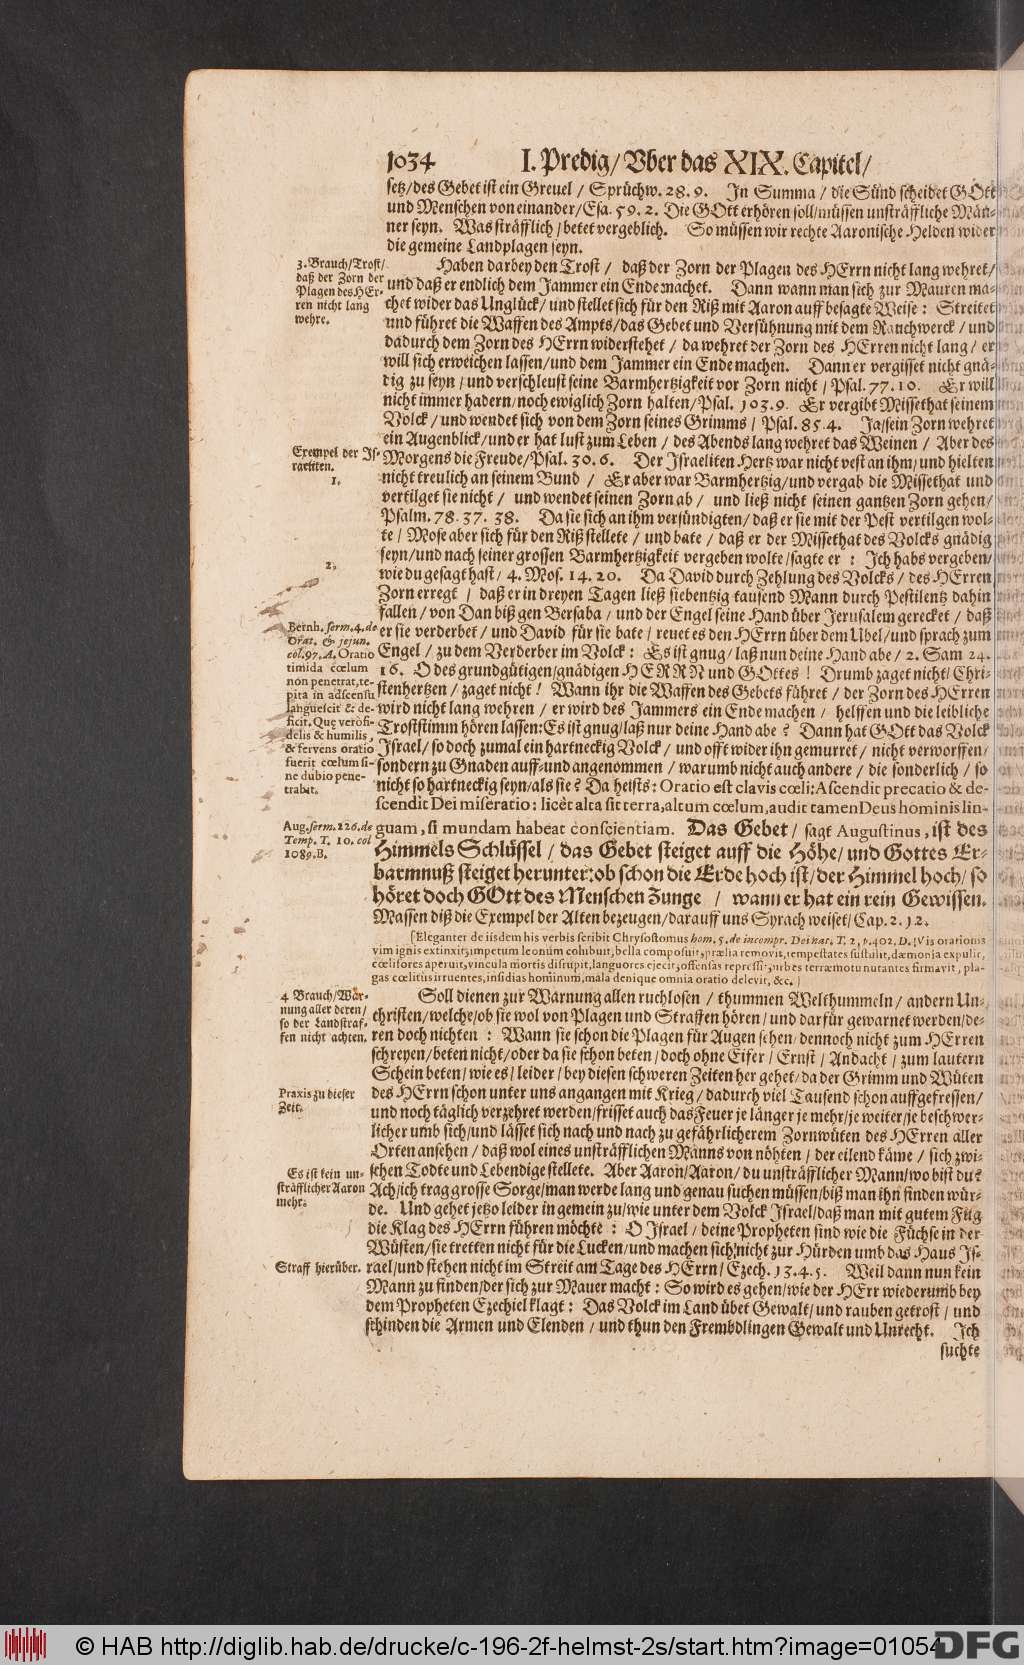 1034 I. Predig/ Vber das XIX. Capitel/
setz/des Gebet ist ein Greuel / Sprüchw. 28. 9. In Summa / die Sünd scheidet GOtt
und Menschen von einander/Esa. 59. 2. Die GOtt erhören soll/müssen unsträffliche Män-
ner seyn. Was sträfflich/betet vergeblich. So müssen wir rechte Aaronische Helden wider
die gemeine Landplagen seyn.
3. Brauch/Trost/
daß der Zorn der
Plagen des HEr-
ren nicht lang
wehre.
Haben darbey den Trost / daß der Zorn der Plagen des HErrn nicht lang wehret/
und daß er endlich dem Jammer ein Ende machet. Dann wann man sich zur Mauren ma-
chet wider das Unglück/und stellet sich für den Riß mit Aaron auff besagte Weise: Streitet
und führet die Waffen des Ampts/das Gebet und Versühnung mit dem Rauchwerck / und
dadurch dem Zorn des HErrn widerstehet / da wehret der Zorn des HErren nicht lang / er
will sich erweichen lassen/und dem Jammer ein Ende machen. Dann er vergisset nicht gnä-
dig zu seyn / und verschleust seine Barmhertzigkeit vor Zorn nicht / Psal. 77. 10. Er will
nicht immer hadern/noch ewiglich Zorn halten/Psal. 103. 9. Er vergibt Missethat seinem
Volck / und wendet sich von dem Zorn seines Grimms / Psal. 85. 4. Ja/sein Zorn wehret
ein Augenblick/und er hat lust zum Leben / des Abends lang wehret das Weinen / Aber des
Exempel der Is-
raeliten.
1.
Morgens die Freude/Psal. 30. 6. Der Israeliten Hertz war nicht vest an ihm/und hielten
nicht treulich an seinem Bund / Er aber war Barmhertzig/und vergab die Missethat und
vertilget sie nicht / und wendet seinen Zorn ab / und ließ nicht seinen gantzen Zorn gehen/
Psalm. 78. 37. 38. Da sie sich an ihm versündigten/daß er sie mit der Pest vertilgen wol-
te / Mose aber sich für den Riß stellete / und bate / daß er der Missethat des Volcks gnädig
seyn/und nach seiner grossen Barmhertzigkeit vergeben wolte/sagte er: Ich habs vergeben/
2.
wie du gesagt hast / 4. Mos. 14. 20. Da David durch Zehlung des Volcks / des HErren
Zorn erregt / daß er in dreyen Tagen ließ siebentzig tausend Mann durch Pestilentz dahin
fallen / von Dan biß gen Bersaba / und der Engel seine Hand über Jerusalem gerecket / daß
er sie verderbet / und David für sie bate / reuet es den HErrn über dem Ubel/und sprach zum
Engel / zu dem Verderber im Volck: Es ist gnug / laß nun deine Hand abe / 2. Sam 24.
16. O des grundgütigen/gnädigen HERRN und GOttes! Drumb zaget nicht/Chri-
stenhertzen / zaget nicht! Wann ihr die Waffen des Gebets führet / der Zorn des HErren
wird nicht lang wehren / er wird des Jammers ein Ende machen / helffen und die leibliche
Troststimm hören lassen: Es ist gnug/laß nur deine Hand abe? Dann hat GOtt das Volck
Israel/so doch zumal ein hartneckig Volck / und offt wider ihn gemurret / nicht verworffen/
sondern zu Gnaden auff-und angenommen / warumb nicht auch andere / die sonderlich / so
nicht so hartneckig seyn/als sie? Da heists: Oratio est clavis cœli: Ascendit precatio & de-
scendit Dei miseratio: licèt alta sit terra, altum cœlum, audit tamen Deus hominis lin-
Bernh. serm. 4. de
Orat. & jejun.
col. 97. A. Oratio
timida cœlum
non penetrat, te-
pita in adscensu
languescit & de-
ficit. Quę verò fi-
delis & humilis,
& fervens oratio
fuerit cœlum si-
ne dubio pene-
trabit.
Aug. serm. 226. de
Temp. T. 10. col
1089. B.
guam, si mundam habeat conscientiam. Das Gebet / sagt Augustinus, ist des
Himmels Schlüssel / das Gebet steiget auff die Höhe/und Gottes Er-
barmnuß steiget herunter: ob schon die Erde hoch ist/der Himmel hoch/so
höret doch GOtt des Menschen Zunge / wann er hat ein rein Gewissen.
Massen diß die Exempel der Alten bezeugen/darauff uns Syrach weiset/Cap. 2. 12.
[Eleganter de iisdem his verbis scribit Chrysostomus hom. 5. de incompr. Dei nat. T. 2, p. 402, D.: Vis orationis
vim ignis extinxit, impetum leonum cohibuit, bella composuit, prælia removit, tempestates sustulit, dæmonia expulit,
cœli fores aperuit, vincula mortis disrupit, languores ejecit, offensas repressit, urbes terræ motu nutantes firmavit, pla-
gas cœlitùs irruentes, insidias hominum, mala denique omnia oratio delevit, &c.]
4 Brauch/War-
nung aller deren/
so der Landstraf-
fen nicht achten.
Soll dienen zur Warnung allen ruchlosen / thummen Welthummeln / andern Un-
christen/welche/ob sie wol von Plagen und Straffen hören / und darfür gewarnet werden/de-
ren doch nichten: Wann sie schon die Plagen für Augen sehen/dennoch nicht zum HErren
schreyen/beten nicht/oder da sie schon beten / doch ohne Eifer / Ernst / Andacht / zum lautern
Schein beten/wie es/leider / bey diesen schweren Zeiten her gehet/da der Grimm und Wüten
Praxis zu dieser
Zeit.
des HErrn schon unter uns angangen mit Krieg / dadurch viel Tausend schon auffgefressen/
und noch täglich verzehret werden/frisset auch das Feuer je länger je mehr/je weiter/je beschwer-
licher umb sich/und lässet sich nach und nach zu gefährlicherem Zornwüten des HErren aller
Orten ansehen / daß wol eines unsträfflichen Manns von nöhten / der eilend käme / sich zwi-
Es ist kein un-
sträfflicher Aaron
mehr.
schen Todte und Lebendige stellete. Aber Aaron/Aaron/du unsträfflicher Mann/wo bist du?
Ach/ich trag grosse Sorge/man werde lang und genau suchen müssen/biß man ihn finden wür-
de. Und gehet jetzo leider in gemein zu/wie unter dem Volck Israel/daß man mit gutem Fug
die Klag des HErrn führen möchte: O Israel / deine Propheten sind wie die Füchse in der
Wüsten/sie tretten nicht für die Lucken/und machen sich nicht zur Hürden umb das Haus Is-
Straff hierüber.
rael/und stehen nicht im Streit am Tage des HErrn/Ezech. 13. 4. 5. Weil dann nun kein
Mann zu finden/der sich zur Mauer macht: So wird es gehen/wie der HErr wiederumb bey
dem Propheten Ezechiel klagt: Das Volck im Land übet Gewalt/und rauben getrost / und
schinden die Armen und Elenden / und thun den Frembdlingen Gewalt und Unrecht. Ich
suchte
© HAB http://diglib.hab.de/drucke/c-196-2f-helmst-2s/start.htm?image=01054
DFG